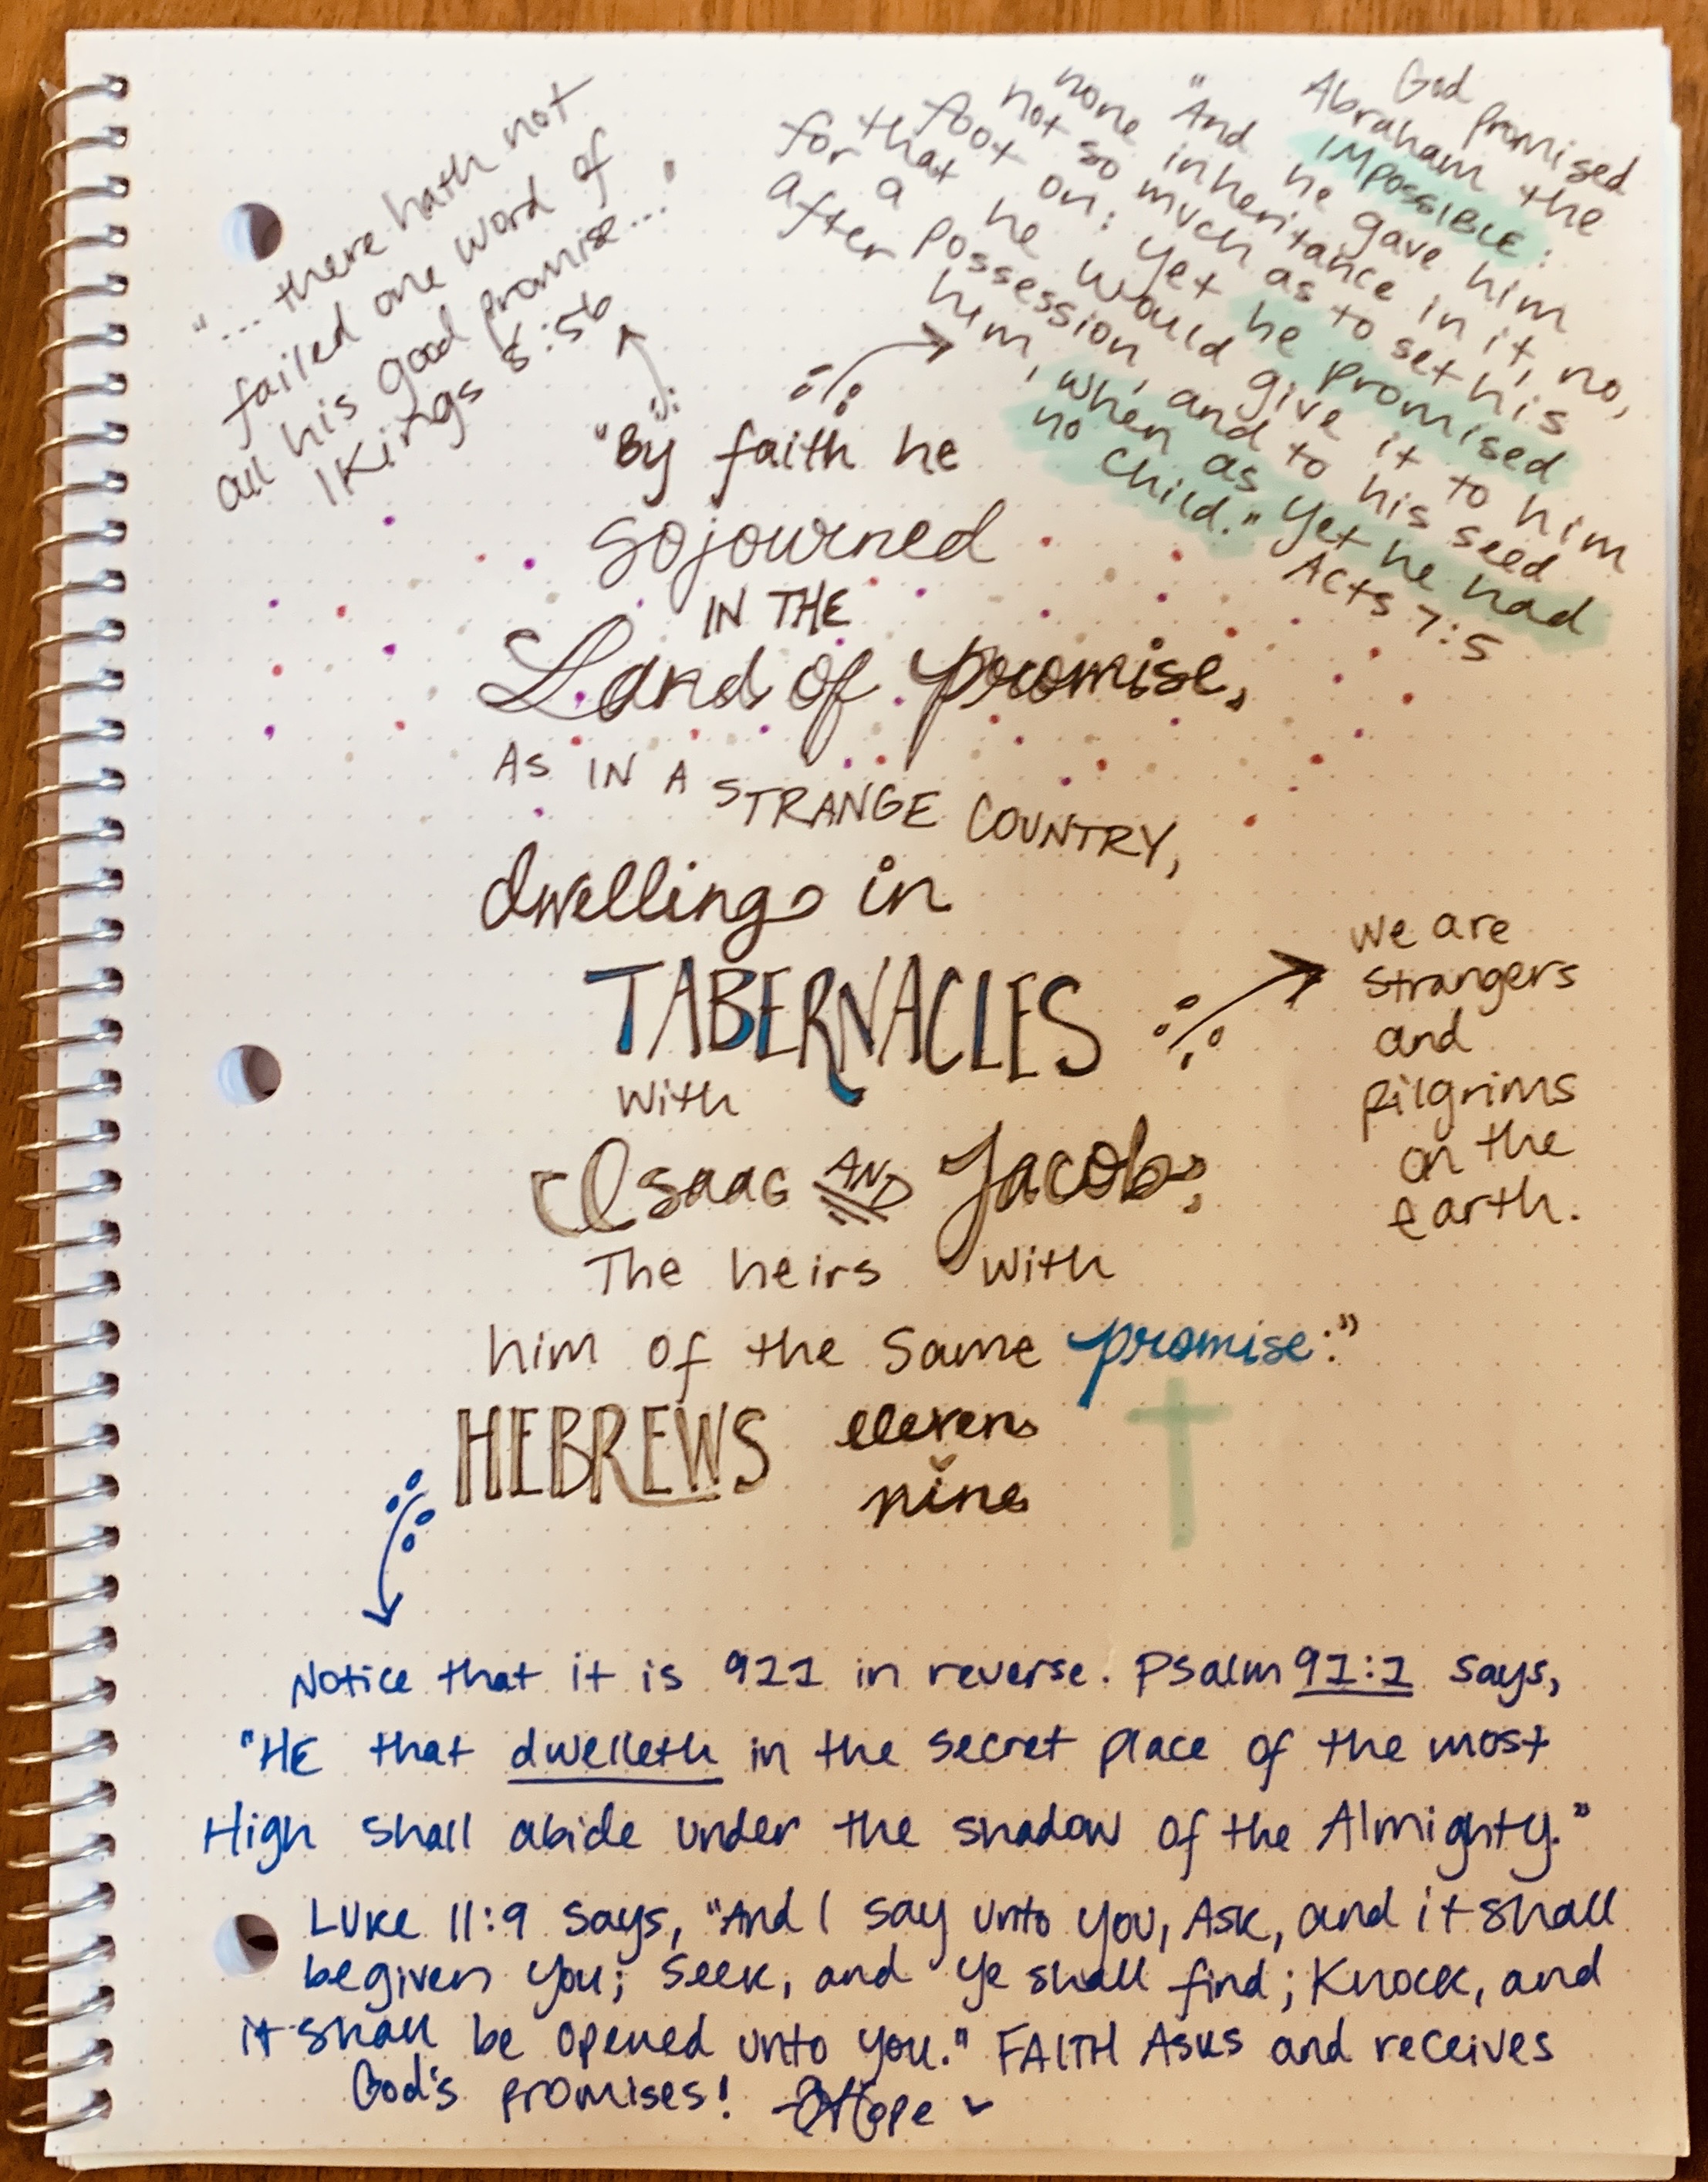 "... there hath not
failed one word of
all his good promise..."
1 Kings 8:56
God promised
Abraham the
IMPOSSIBLE:
"And he gave him
none inheritance in it, no,
not so much as to set his
foot on: yet he promised
that he would give it to him
for a possession, and to his seed
after him, when as yet he had
no child." Acts 7:5
"By faith he
sojourned
IN THE
Land of promise,
AS IN A STRANGE COUNTRY,
dwelling in
TABERNACLES
with
Isaac AND Jacob,
The heirs with
him of the same promise:"
HEBREWS eleven
nine
we are
strangers
and
pilgrims
on the
earth.
Notice that it is 911 in reverse. Psalm 91:1 says,
"HE that dwelleth in the secret place of the most
High shall abide under the shadow of the Almighty."
Luke 11:9 says, "And I say unto you, Ask, and it shall
be given you; seek, and ye shall find; Knock, and
it shall be opened unto you." FAITH Asks and receives
God's promises! -Hope